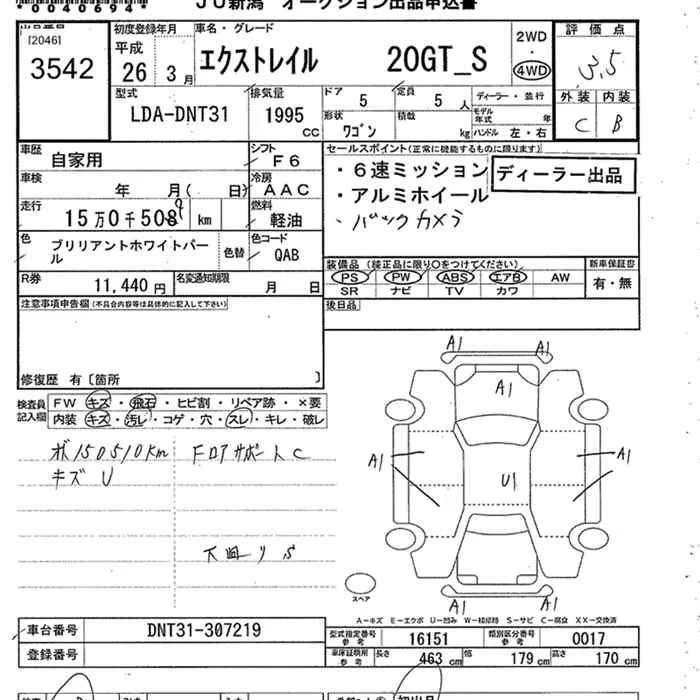 *0040694*
JU新潟 オークション出品申込書
出品番号
[2046]
3542
初度登録年月
平成
26年 3月
車名・グレード
エクストレイル 20GT_S
2WD
・
4WD
評価点
3.5
外装 内装
C B
型式
LDA-DNT31
排気量
1995
CC
ドア
5
定員
5 人
ディーラー・並行
形状
ワゴン
積載
kg
モデル年式
年
ハンドル 左・右
車歴
自家用
シフト
F6
車検
年 月( 日)
冷房
AAC
走行
15万0千509 km
燃料
軽油
色
ブリリアントホワイトパール
色替
色コード
QAB
R券
11,440円
名変通知期限
月 日
セールスポイント(正常に機能するものに限ります)
・6速ミッション
・アルミホイール
・バックカメラ
ディーラー出品
装備品 (純正品に限り〇をつけてください)
PS PW ABS エアB AW
SR ナビ TV カワ
新車保証書
有・無
後日品
注意事項申告欄(不具合内容等は具体的に記入して下さい)
修復歴 有〔箇所 〕
検査員
記入欄
FW キズ・飛石・ヒビ割・リペア跡・×要
内装 キズ・汚レ・コゲ・穴・スレ・キレ・破レ
ボ150510km
キズ U
フロアサポートC
A1
A1
A1
A1
U1
A1
A1
スペア
A=キズ E=エクボ U=凹み W=補修跡 S=サビ C=腐食 XX=交換済
車台番号
DNT31-307219
登録番号
型式指定番号
参考
16151
類別区分番号
参考
0017
車庫証明用
参考
長さ 463 cm
幅 179 cm
高さ 170 cm